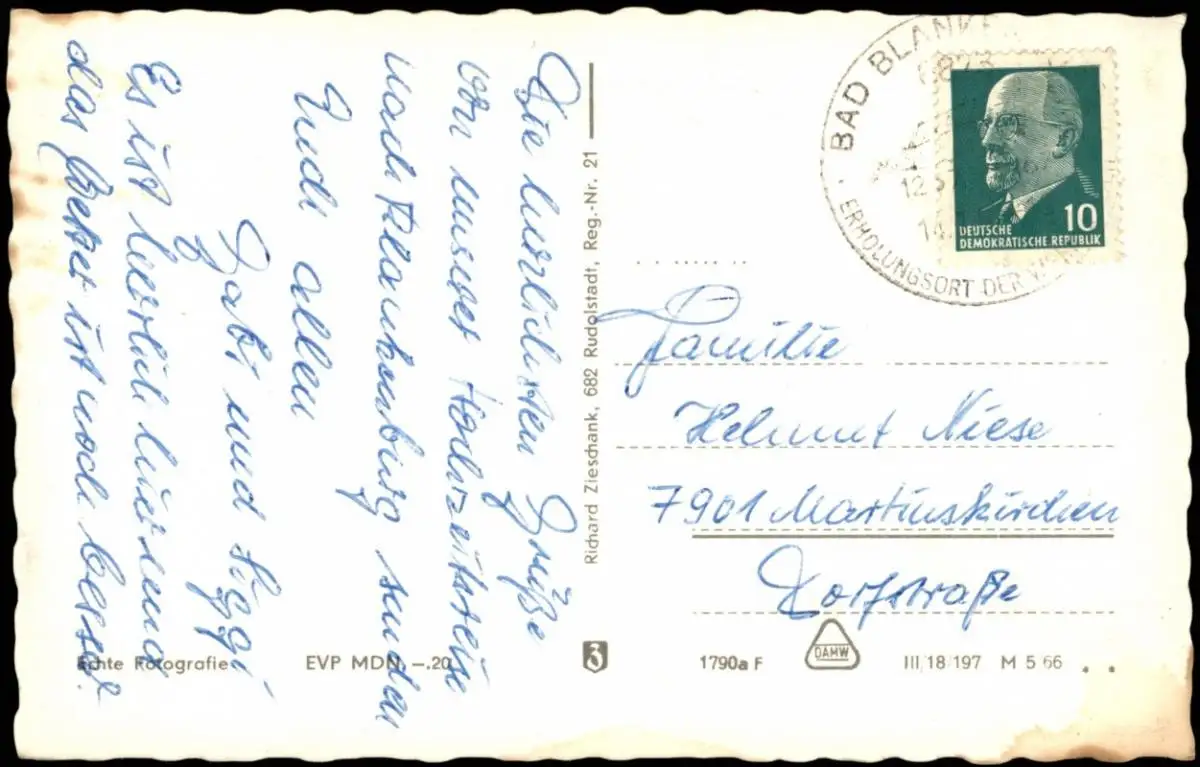 Die herzlichsten Grüße
von unserer Hochzeitsreise
nach Blankenburg senden
Euch allen
Gabi und Siggi
Es ist herrlich hier und
das Wetter ist noch besser.
Richard Zieschank, 682 Rudolstadt, Reg.-Nr. 21
BAD BLANKE
6823
12
14
ERHOLUNGSORT DER
10
DEUTSCHE
DEMOKRATISCHE REPUBLIK
Familie
Helmut Niese
7901 Martinskirchen
Dorfstraße
Echte Fotografie
EVP MDN –.20
3
1790a F
DAMW
III/18/197 M 5 66